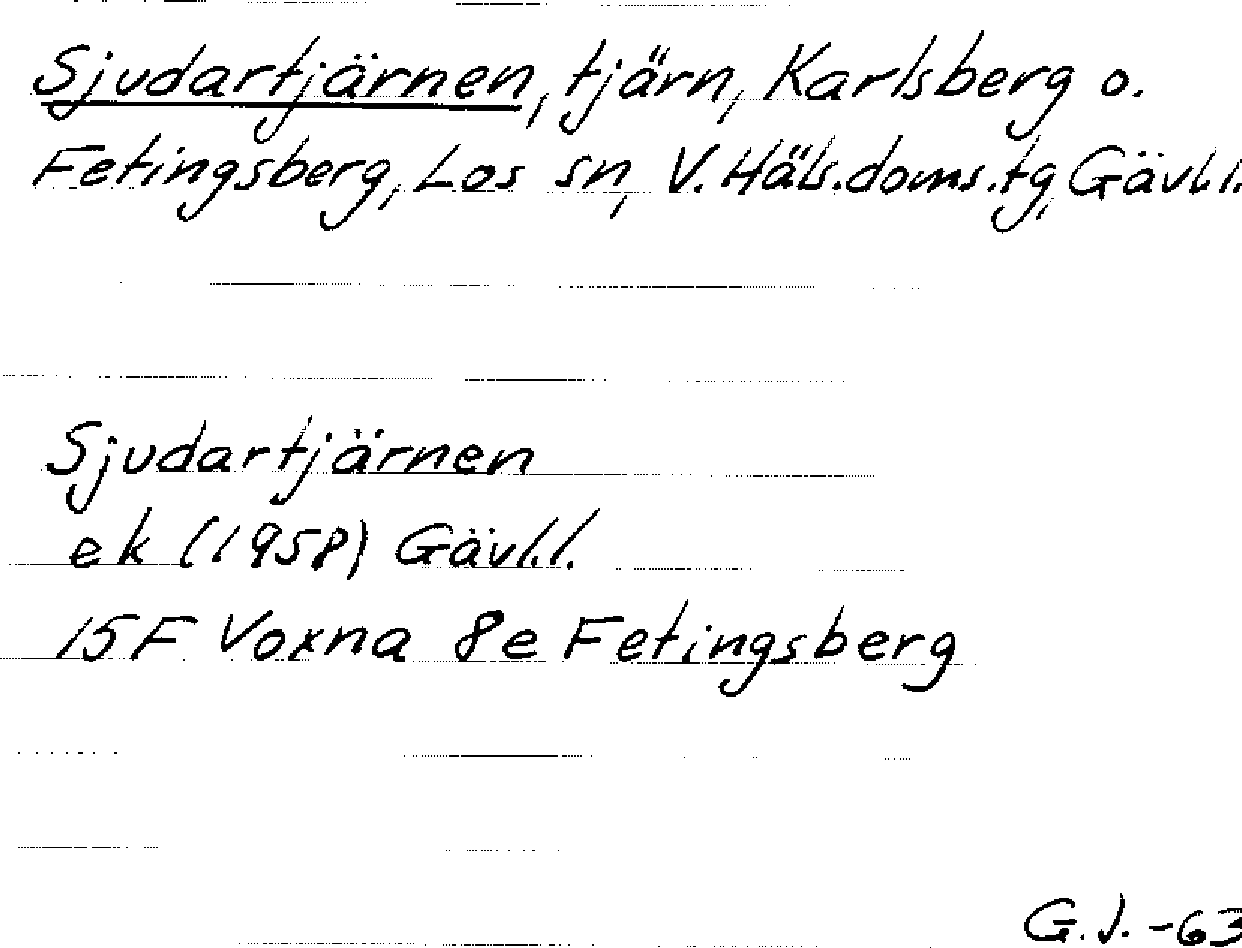 Sjudartjärnen, tjärn, Karlsberg o.
Fetingsberg, Los sn, V. Häls. doms.tg, Gävl.l.
Sjudartjärnen
ek (1958) Gävl.l.
15F Voxna 8e Fetingsberg
G.J. -63